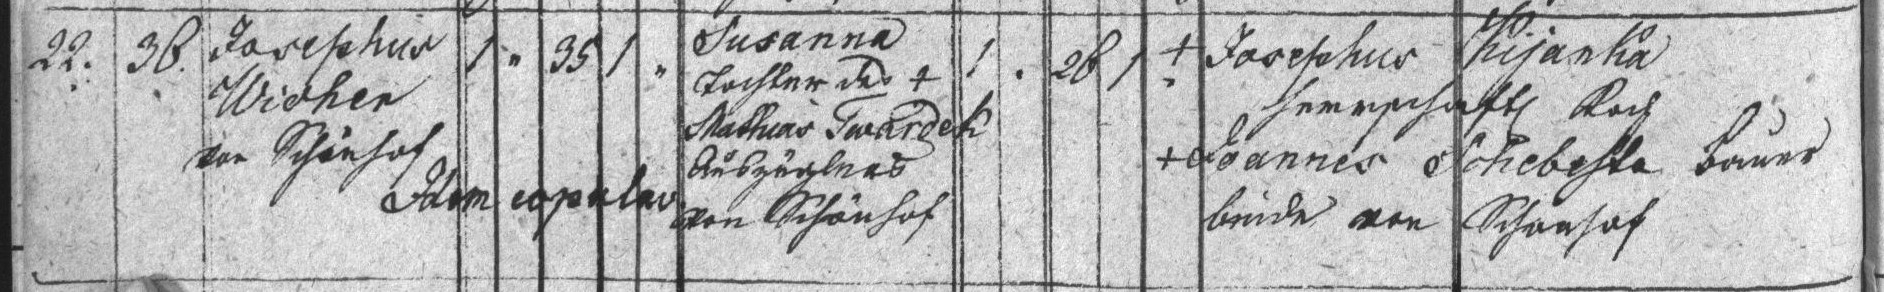 22. 36. Josephus 1 " 35 1 " Susanna 1 . 26 1 + Josephus Kijanka
Wicher Tochter des + herrschaftl Koch
von Schönhof Mathias Twardek + Joannes Schebesta Bauer
Auszüglers
Idem copulav von Schönhof beide von Schönhof